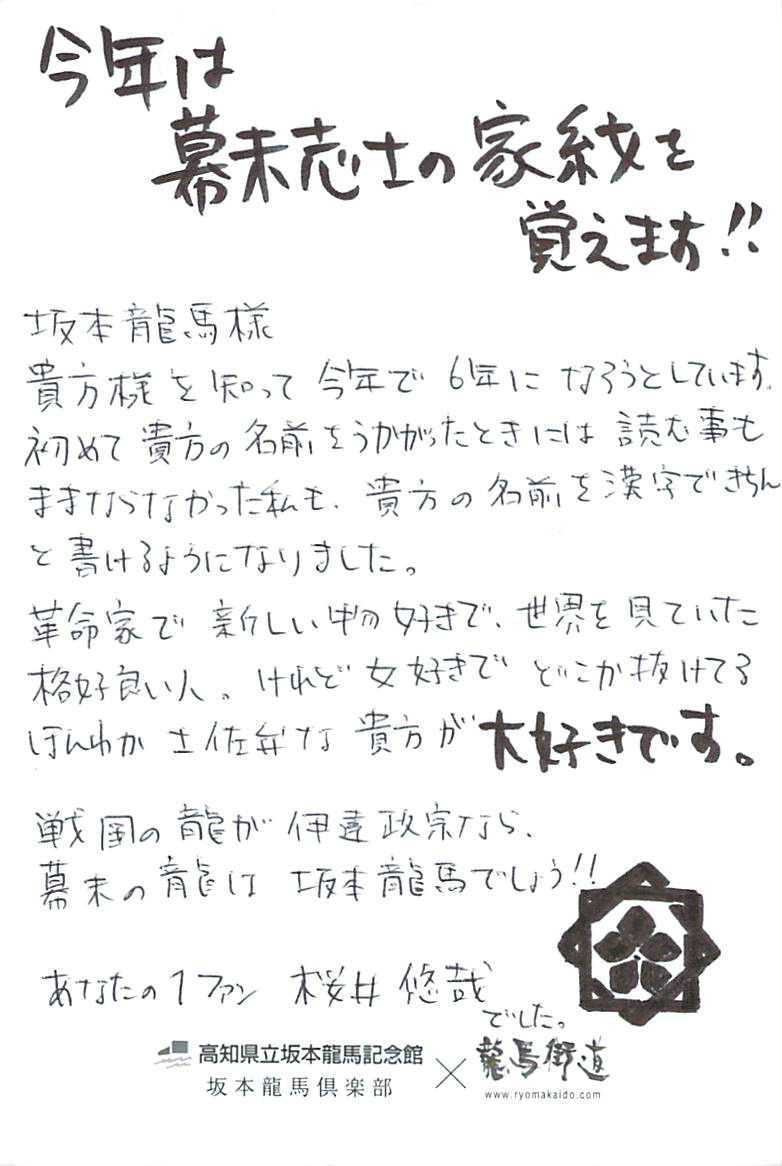 今年は
幕末志士の家紋を
覚えます!!
坂本龍馬様
貴方様を知って今年で6年になろうとしています。
初めて貴方の名前をうかがったときには読む事も
ままならなかった私も、貴方の名前を漢字できちん
と書けるようになりました。
革命家で新しい物好きで、世界を見ていた
格好良い人。けれど女好きでどこか抜けてる
ほんわか土佐弁な貴方が大好きです。
戦国の龍が伊達政宗なら、
幕末の龍は坂本龍馬でしょう!!
あなたの1ファン 桜井悠哉
でしたっ
高知県立坂本龍馬記念館
坂本龍馬倶楽部
×
龍馬街道
www.ryomakaido.com